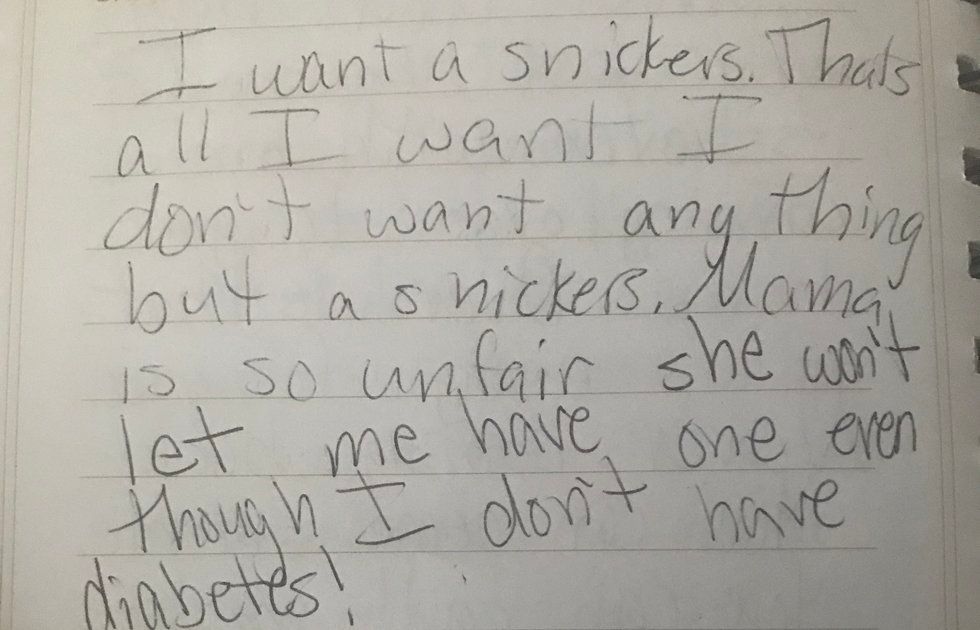 I want a snickers. Thats
all I want I
don't want any thing
but a snickers. Mama
is so unfair she won't
let me have one even
though I don't have
diabetes!